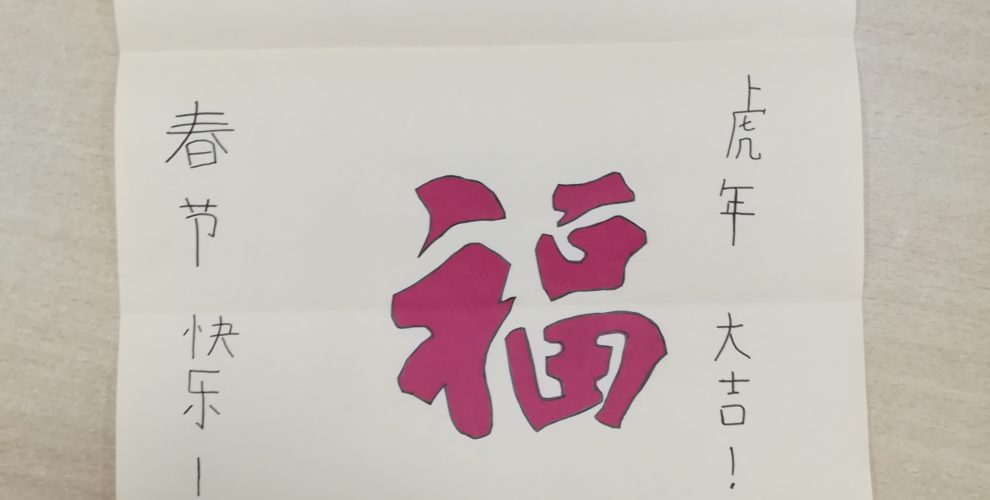 春节快乐!
福
虎年大吉!